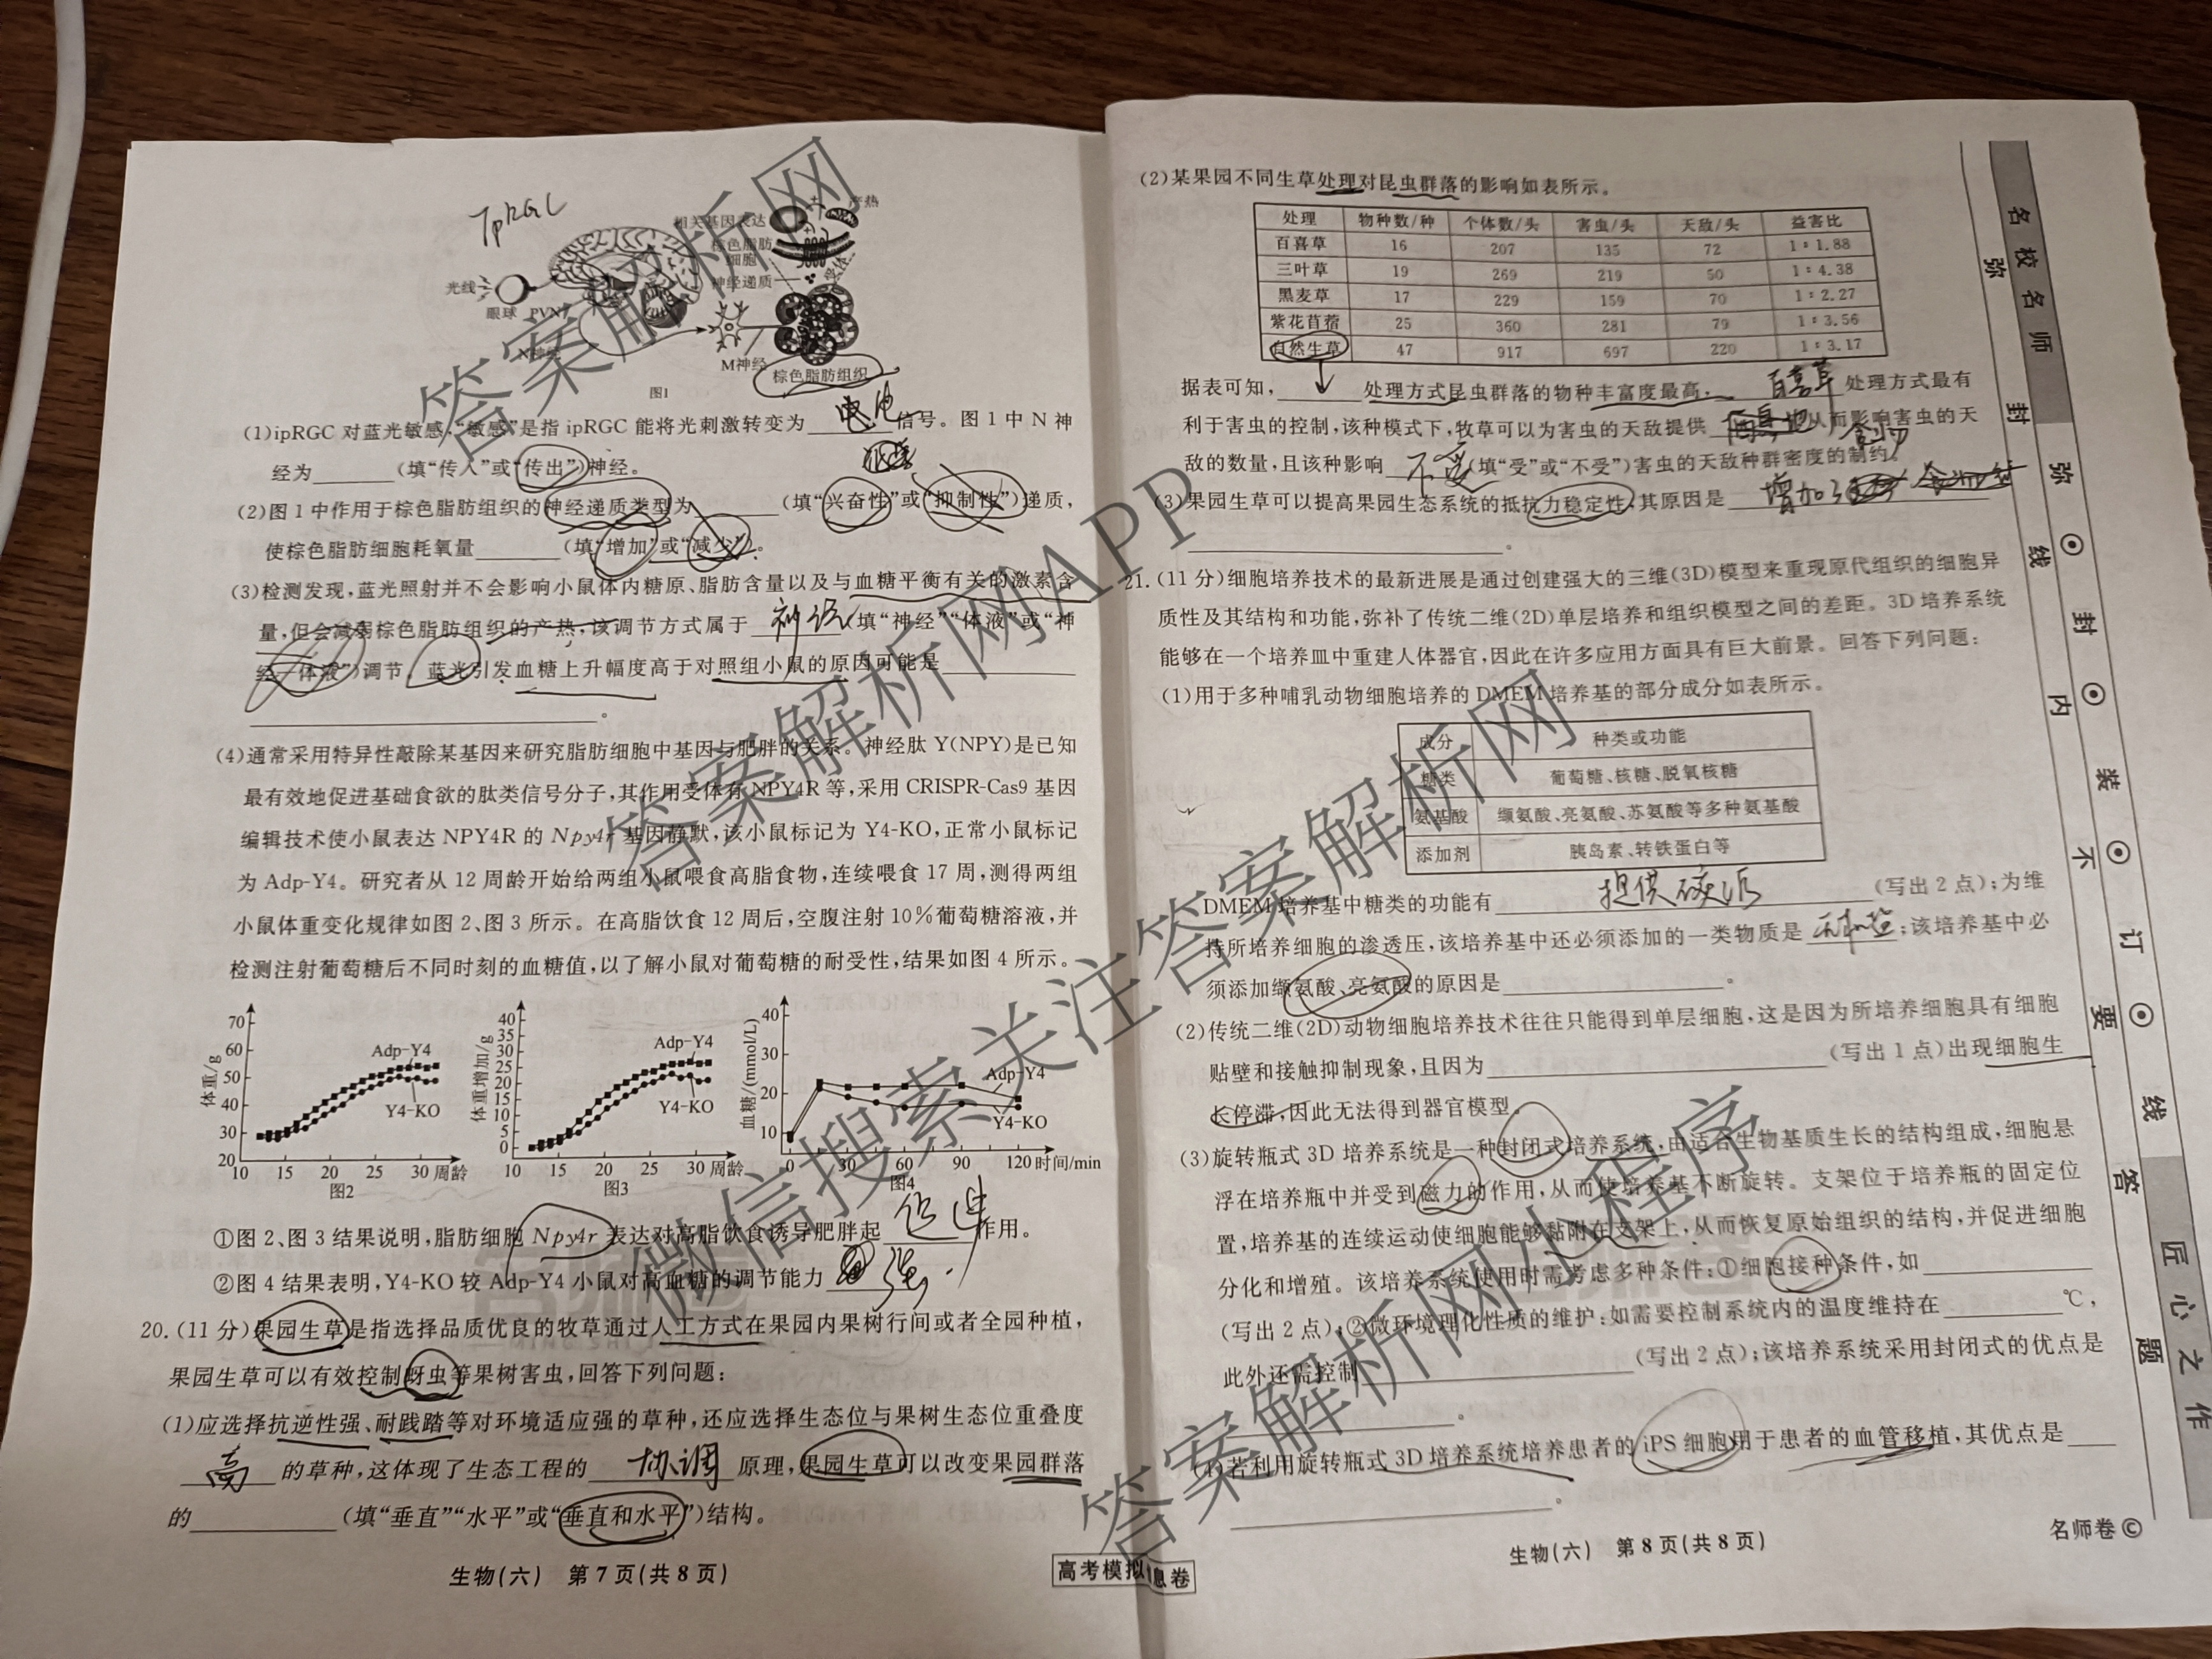 IpRGC
相关基因表达
产热
棕色脂肪
细胞
神经递质
受体
光线
眼球 PVN
N神经
M神经
棕色脂肪组织
图1
(1)ipRGC对蓝光敏感,“敏感”是指ipRGC能将光刺激转变为 电 信号。图1中N神
经为________(填“传入”或“传出”)神经。
(2)图1中作用于棕色脂肪组织的神经递质类型为________(填“兴奋性”或“抑制性”)递质,
使棕色脂肪细胞耗氧量________(填“增加”或“减少”)。
(3)检测发现,蓝光照射并不会影响小鼠体内糖原、脂肪含量以及与血糖平衡有关的激素含
量,但会减弱棕色脂肪组织的产热,该调节方式属于 神经 (填“神经”“体液”或“神
经—体液”)调节。蓝光引发血糖上升幅度高于对照组小鼠的原因可能是________
________。
(4)通常采用特异性敲除某基因来研究脂肪细胞中基因与肥胖的关系。神经肽Y(NPY)是已知
最有效地促进基础食欲的肽类信号分子,其作用受体有NPY4R等,采用CRISPR-Cas9基因
编辑技术使小鼠表达NPY4R的Npy4r基因静默,该小鼠标记为Y4-KO,正常小鼠标记
为Adp-Y4。研究者从12周龄开始给两组小鼠喂食高脂食物,连续喂食17周,测得两组
小鼠体重变化规律如图2、图3所示。在高脂饮食12周后,空腹注射10%葡萄糖溶液,并
检测注射葡萄糖后不同时刻的血糖值,以了解小鼠对葡萄糖的耐受性,结果如图4所示。
体重/g
70
60
50
40
30
20
Adp-Y4
Y4-KO
10 15 20 25 30 周龄
图2
体重增加/g
40
35
30
25
20
15
10
5
0
Adp-Y4
Y4-KO
10 15 20 25 30 周龄
图3
血糖/(mmol/L)
40
30
20
10
Adp-Y4
Y4-KO
0 30 60 90 120 时间/min
图4
①图2、图3结果说明,脂肪细胞Npy4r表达对高脂饮食诱导肥胖起 促进 作用。
②图4结果表明,Y4-KO较Adp-Y4小鼠对高血糖的调节能力 强 。
20.(11分)果园生草是指选择品质优良的牧草通过人工方式在果园内果树行间或者全园种植,
果园生草可以有效控制蚜虫等果树害虫,回答下列问题:
(1)应选择抗逆性强、耐践踏等对环境适应强的草种,还应选择生态位与果树生态位重叠度
高 的草种,这体现了生态工程的 协调 原理,果园生草可以改变果园群落
的________(填“垂直”“水平”或“垂直和水平”)结构。
生物(六) 第7页(共8页)
高考模拟 息卷
(2)某果园不同生草处理对昆虫群落的影响如表所示。
处理 物种数/种 个体数/头 害虫/头 天敌/头 益害比
百喜草 16 207 135 72 1:1.88
三叶草 19 269 219 50 1:4.38
黑麦草 17 229 159 70 1:2.27
紫花苜蓿 25 360 281 79 1:3.56
自然生草 47 917 697 220 1:3.17
据表可知,________处理方式昆虫群落的物种丰富度最高, 百喜草 处理方式最有
利于害虫的控制,该种模式下,牧草可以为害虫的天敌提供 食物 从而影响害虫的天
敌的数量,且该种影响 不受 (填“受”或“不受”)害虫的天敌种群密度的制约。
(3)果园生草可以提高果园生态系统的抵抗力稳定性,其原因是 增加了
________。
21.(11分)细胞培养技术的最新进展是通过创建强大的三维(3D)模型来重现原代组织的细胞异
质性及其结构和功能,弥补了传统二维(2D)单层培养和组织模型之间的差距。3D培养系统
能够在一个培养皿中重建人体器官,因此在许多应用方面具有巨大前景。回答下列问题:
(1)用于多种哺乳动物细胞培养的DMEM培养基的部分成分如表所示。
成分 种类或功能
糖类 葡萄糖、核糖、脱氧核糖
氨基酸 缬氨酸、亮氨酸、苏氨酸等多种氨基酸
添加剂 胰岛素、转铁蛋白等
DMEM培养基中糖类的功能有 提供碳源 (写出2点);为维
持所培养细胞的渗透压,该培养基中还必须添加的一类物质是 无机盐 ;该培养基中必
须添加缬氨酸、亮氨酸的原因是________。
(2)传统二维(2D)动物细胞培养技术往往只能得到单层细胞,这是因为所培养细胞具有细胞
贴壁和接触抑制现象,且因为________(写出1点)出现细胞生
长停滞,因此无法得到器官模型。
(3)旋转瓶式3D培养系统是一种封闭式培养系统,由适合生物基质生长的结构组成,细胞悬
浮在培养瓶中并受到磁力的作用,从而使培养基不断旋转。支架位于培养瓶的固定位
置,培养基的连续运动使细胞能够黏附在支架上,从而恢复原始组织的结构,并促进细胞
分化和增殖。该培养系统使用时需考虑多种条件:①细胞接种条件,如________
(写出2点);②微环境理化性质的维护:如需要控制系统内的温度维持在________℃,
此外还需控制________(写出2点);该培养系统采用封闭式的优点是
________。
(4)若利用旋转瓶式3D培养系统培养患者的iPS细胞用于患者的血管移植,其优点是____
________。
生物(六) 第8页(共8页)
名师卷©
名校名师
匠心之作
弥 封 线 内 不 要 答 题
弥 封 装 订 线
答案解析网
微信搜索关注答案解析网APP
答案解析网小程序